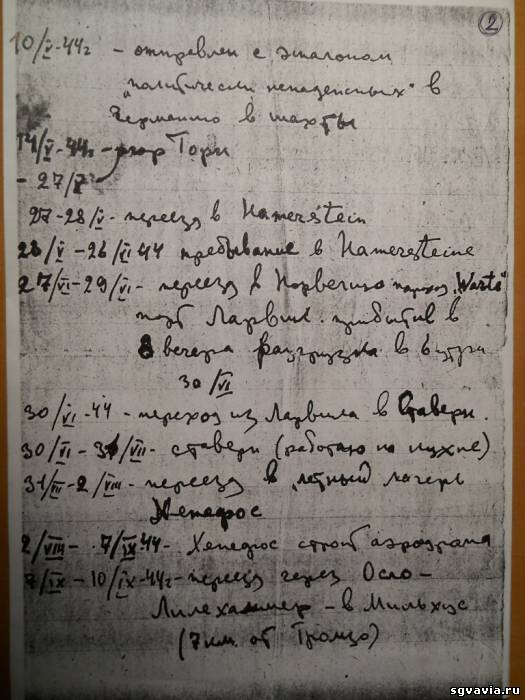 2
10/V-44г - отправлен с эшалоном
"политически ненадежных" в
Германию в шахты
14/V-44г - Торн
- 27/V
27-28/V- переезд в Hamerstein
28/V-26/VI 44 пребывание в Hamersteine
27/VI-29/VI- переезд в Норвегию пароход "Warta"
порт Ларвик. прибытие в
8 вечера разгрузка в 6 утра
30/VI
30/VI-44 - переход из Ларвика в Ставерн.
30/VI - 31/VII- ставерн (работаю на кухне)
31/VII-2/VIII- переезд в летный лагерь
Хенефос
2/VIII- 7/IX 44- Хенефос строит аэродрома
7/IX-10/IX-44г-переезд через Осло-
Лилехаммер - в Мильхус
(7км. от Тромзо)
sgvavia.ru